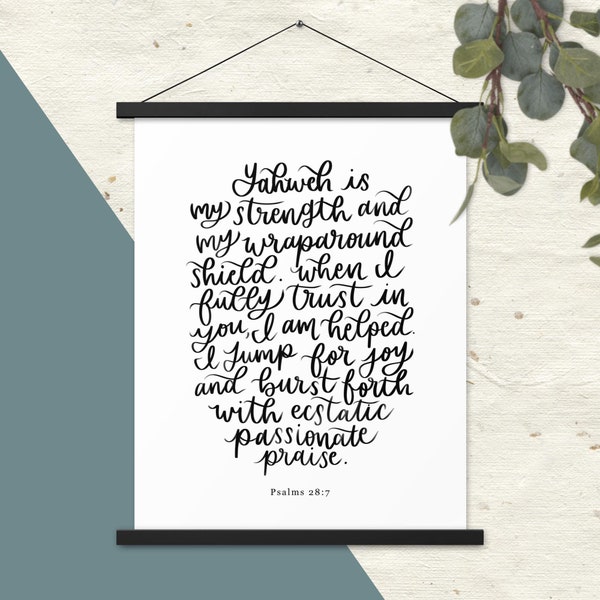 Yahweh is
my strength and
my wraparound
shield. When I
fully trust in
you, I am helped.
I jump for joy
and burst forth
with ecstatic
passionate
praise.
Psalms 28:7